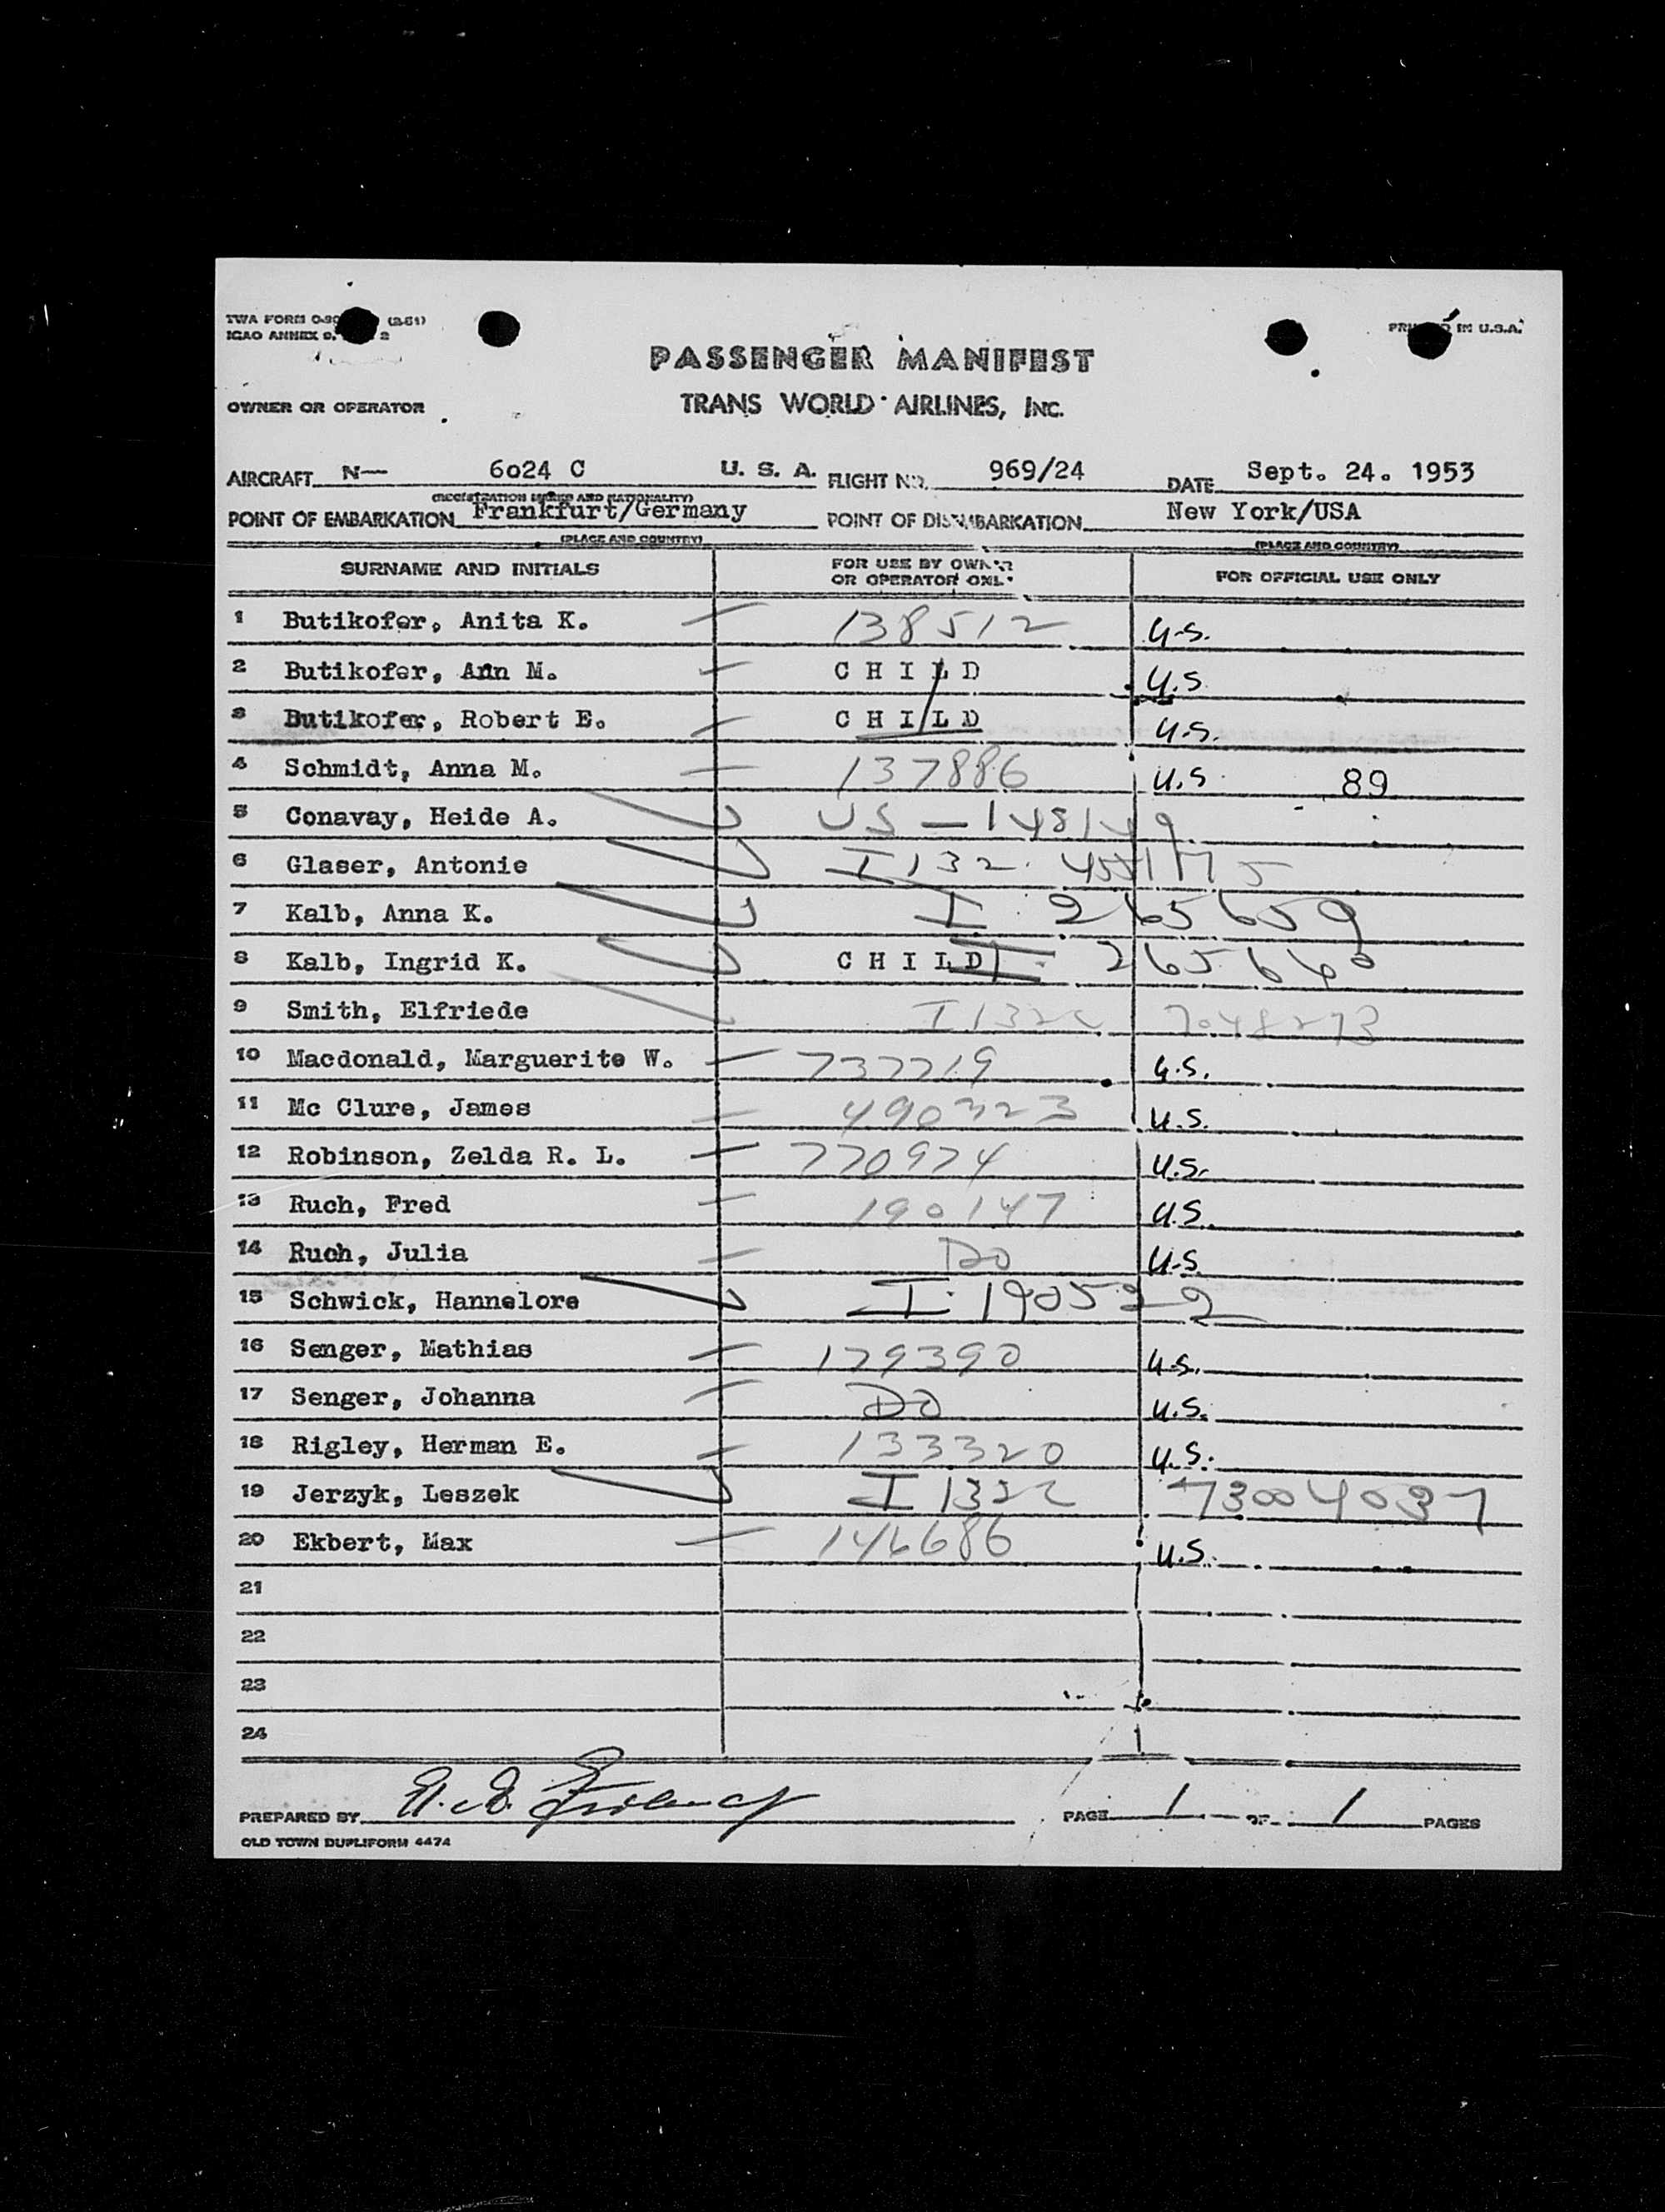 TWA FORM (2-51)
ICAO ANNEX 9.
PRINTED IN U.S.A.
PASSENGER MANIFEST
OWNER OR OPERATOR TRANS WORLD AIRLINES, INC.
AIRCRAFT N— 6024 C U. S. A. FLIGHT NO. 969/24 DATE Sept. 24. 1953
(REGISTRATION MARKS AND NATIONALITY)
POINT OF EMBARKATION Frankfurt/Germany POINT OF DISEMBARKATION New York/USA
(PLACE AND COUNTRY) (PLACE AND COUNTRY)
SURNAME AND INITIALS FOR USE BY OWNER OR OPERATOR ONLY FOR OFFICIAL USE ONLY
1 Butikofer, Anita K. 138512 U.S.
2 Butikofer, Ann M. C H I L D U.S.
3 Butikofer, Robert E. C H I L D U.S.
4 Schmidt, Anna M. 137886 U.S. 89
5 Conavay, Heide A. US — 148149
6 Glaser, Antonie I 132
7 Kalb, Anna K. I 265659
8 Kalb, Ingrid K. C H I L D I 265660
9 Smith, Elfriede I 132c 7048273
10 Macdonald, Marguerite W. 737719 U.S.
11 Mc Clure, James 490323 U.S.
12 Robinson, Zelda R. L. 770974 U.S.
13 Ruch, Fred 190147 U.S.
14 Ruch, Julia Do U.S.
15 Schwick, Hannelore I 190522
16 Senger, Mathias 179390 U.S.
17 Senger, Johanna DO U.S.
18 Rigley, Herman E. 133320 U.S.
19 Jerzyk, Leszek I 132c 73004037
20 Ekbert, Max 146686 U.S.
21
22
23
24
PREPARED BY PAGE 1 OF 1 PAGES
OLD TOWN DUPLIFORM 4474